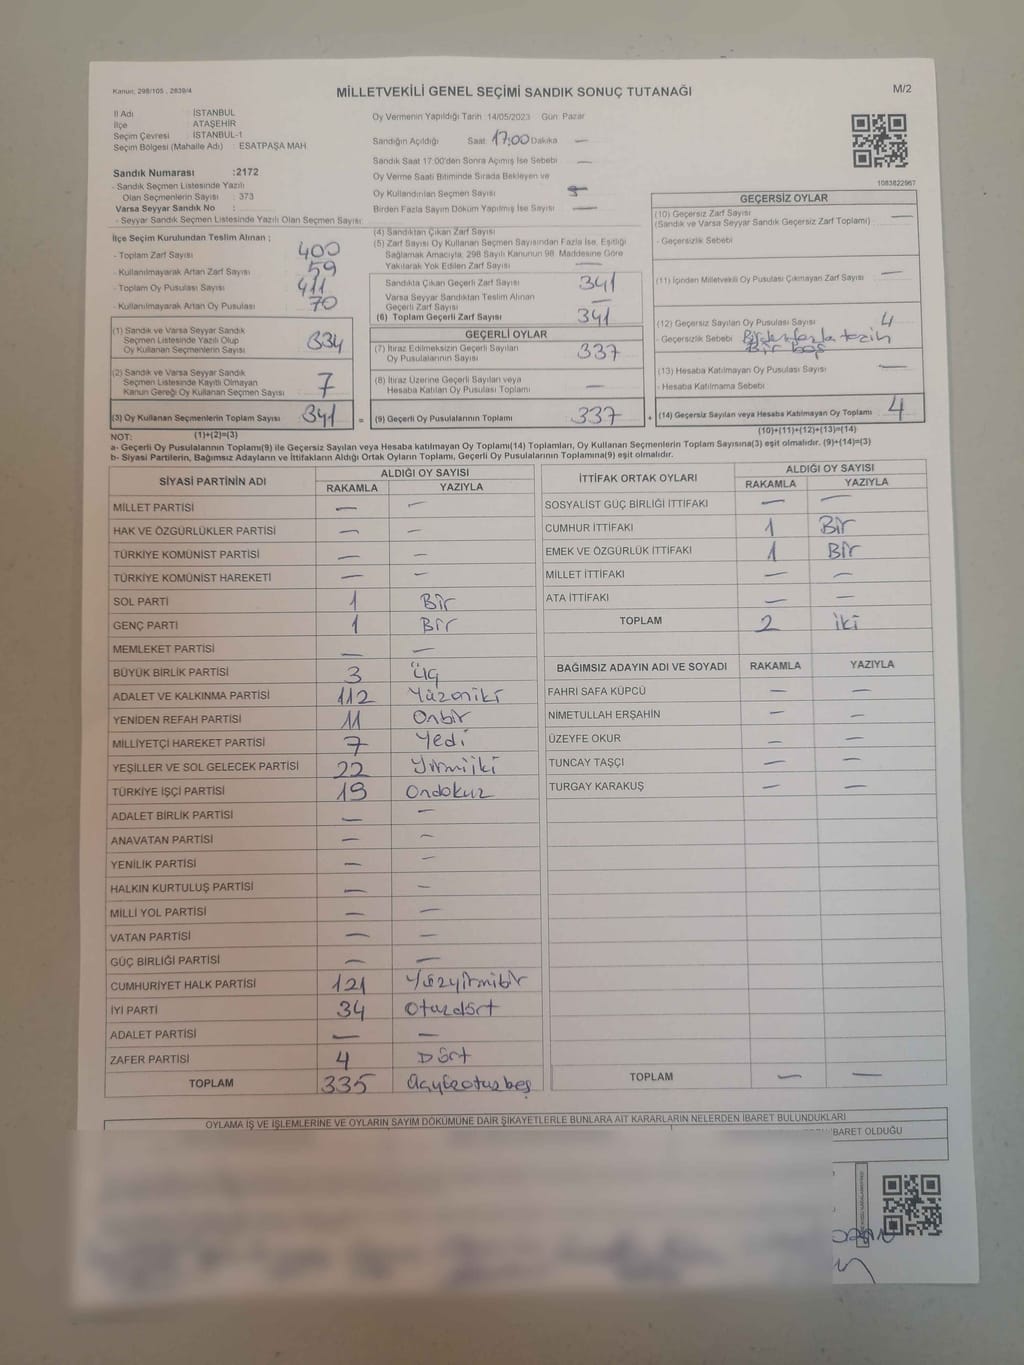 Kanun, 298/105 , 2839/4
MİLLETVEKİLİ GENEL SEÇİMİ SANDIK SONUÇ TUTANAĞI
M/2
İl Adı : İSTANBUL
İlçe : ATAŞEHİR
Seçim Çevresi : İSTANBUL-1
Seçim Bölgesi (Mahalle Adı) : ESATPAŞA MAH.
Sandık Numarası :2172
- Sandık Seçmen Listesinde Yazılı
Olan Seçmenlerin Sayısı : 373
Varsa Seyyar Sandık No :
- Seyyar Sandık Seçmen Listesinde Yazılı Olan Seçmen Sayısı:
Oy Vermenin Yapıldığı Tarih 14/05/2023 Gün Pazar
Sandığın Açıldığı Saat 17:00 Dakika —
Sandık Saat 17:00'den Sonra Açımış İse Sebebi —
Oy Verme Saati Bitiminde Sırada Bekleyen ve
Oy Kullandırılan Seçmen Sayısı
Birden Fazla Sayım Döküm Yapılmış İse Sayısı —
1083822967
İlçe Seçim Kurulundan Teslim Alınan ;
- Toplam Zarf Sayısı 400
- Kullanılmayarak Artan Zarf Sayısı 59
- Toplam Oy Pusulası Sayısı 411
- Kullanılmayarak Artan Oy Pusulası 70
(1) Sandık ve Varsa Seyyar Sandık
Seçmen Listesinde Yazılı Olup
Oy Kullanan Seçmenlerin Sayısı 334
(2) Sandık ve Varsa Seyyar Sandık
Seçmen Listesinde Kayıtlı Olmayan
Kanun Gereği Oy Kullanan Seçmen Sayısı 7
(3) Oy Kullanan Seçmenlerin Toplam Sayısı 341 =
(1)+(2)=(3)
(4) Sandıktan Çıkan Zarf Sayısı
(5) Zarf Sayısı Oy Kullanan Seçmen Sayısından Fazla İse, Eşitliği
Sağlamak Amacıyla, 298 Sayılı Kanunun 98. Maddesine Göre
Yakılarak Yok Edilen Zarf Sayısı —
Sandıkta Çıkan Geçerli Zarf Sayısı 341
Varsa Seyyar Sandıktan Teslim Alınan
Geçerli Zarf Sayısı —
(6) Toplam Geçerli Zarf Sayısı 341
GEÇERLİ OYLAR
(7) İtiraz Edilmeksizin Geçerli Sayılan
Oy Pusulalarının Sayısı 337
(8) İtiraz Üzerine Geçerli Sayılan veya
Hesaba Katılan Oy Pusulası Toplamı —
(9) Geçerli Oy Pusulalarının Toplamı 337 +
GEÇERSİZ OYLAR
(10) Geçersiz Zarf Sayısı —
(Sandık ve Varsa Seyyar Sandık Geçersiz Zarf Toplamı)
- Geçersizlik Sebebi
(11) İçinden Milletvekili Oy Pusulası Çıkmayan Zarf Sayısı —
(12) Geçersiz Sayılan Oy Pusulası Sayısı 4
- Geçersizlik Sebebi
Bir boş
(13) Hesaba Katılmayan Oy Pusulası Sayısı —
- Hesaba Katılmama Sebebi
(14) Geçersiz Sayılan veya Hesaba Katılmayan Oy Toplamı 4
(10)+(11)+(12)+(13)=(14)
NOT:
a- Geçerli Oy Pusulalarının Toplamı(9) ile Geçersiz Sayılan veya Hesaba katılmayan Oy Toplamı(14) Toplamları, Oy Kullanan Seçmenlerin Toplam Sayısına(3) eşit olmalıdır. (9)+(14)=(3)
b- Siyasi Partilerin, Bağımsız Adayların ve İttifakların Aldığı Ortak Oyların Toplamı, Geçerli Oy Pusulalarının Toplamına(9) eşit olmalıdır.
SİYASİ PARTİNİN ADI
ALDIĞI OY SAYISI
RAKAMLA YAZIYLA
MİLLET PARTİSİ — —
HAK VE ÖZGÜRLÜKLER PARTİSİ — —
TÜRKİYE KOMÜNİST PARTİSİ — —
TÜRKİYE KOMÜNİST HAREKETİ — —
SOL PARTİ 1 Bir
GENÇ PARTİ 1 Bir
MEMLEKET PARTİSİ — —
BÜYÜK BİRLİK PARTİSİ 3 Üç
ADALET VE KALKINMA PARTİSİ 112 Yüzoniki
YENİDEN REFAH PARTİSİ 11 Onbir
MİLLİYETÇİ HAREKET PARTİSİ 7 Yedi
YEŞİLLER VE SOL GELECEK PARTİSİ 22 Yirmiiki
TÜRKİYE İŞÇİ PARTİSİ 19 Ondokuz
ADALET BİRLİK PARTİSİ — —
ANAVATAN PARTİSİ — —
YENİLİK PARTİSİ — —
HALKIN KURTULUŞ PARTİSİ — —
MİLLİ YOL PARTİSİ — —
VATAN PARTİSİ — —
GÜÇ BİRLİĞİ PARTİSİ — —
CUMHURİYET HALK PARTİSİ 121 Yüzyirmibir
İYİ PARTİ 34 Otuzdört
ADALET PARTİSİ — —
ZAFER PARTİSİ 4 Dört
TOPLAM 335 Üçyüzotuzbeş
İTTİFAK ORTAK OYLARI
ALDIĞI OY SAYISI
RAKAMLA YAZIYLA
SOSYALİST GÜÇ BİRLİĞİ İTTİFAKI — —
CUMHUR İTTİFAKI 1 Bir
EMEK VE ÖZGÜRLÜK İTTİFAKI 1 Bir
MİLLET İTTİFAKI — —
ATA İTTİFAKI — —
TOPLAM 2 iki
BAĞIMSIZ ADAYIN ADI VE SOYADI RAKAMLA YAZIYLA
FAHRİ SAFA KÜPCÜ — —
NİMETULLAH ERŞAHİN — —
ÜZEYFE OKUR — —
TUNCAY TAŞÇI — —
TURGAY KARAKUŞ — —
TOPLAM — —
OYLAMA İŞ VE İŞLEMLERİNE VE OYLARIN SAYIM DÖKÜMÜNE DAİR ŞİKAYETLERLE BUNLARA AİT KARARLARIN NELERDEN İBARET BULUNDUKLARI
İBARET OLDUĞU